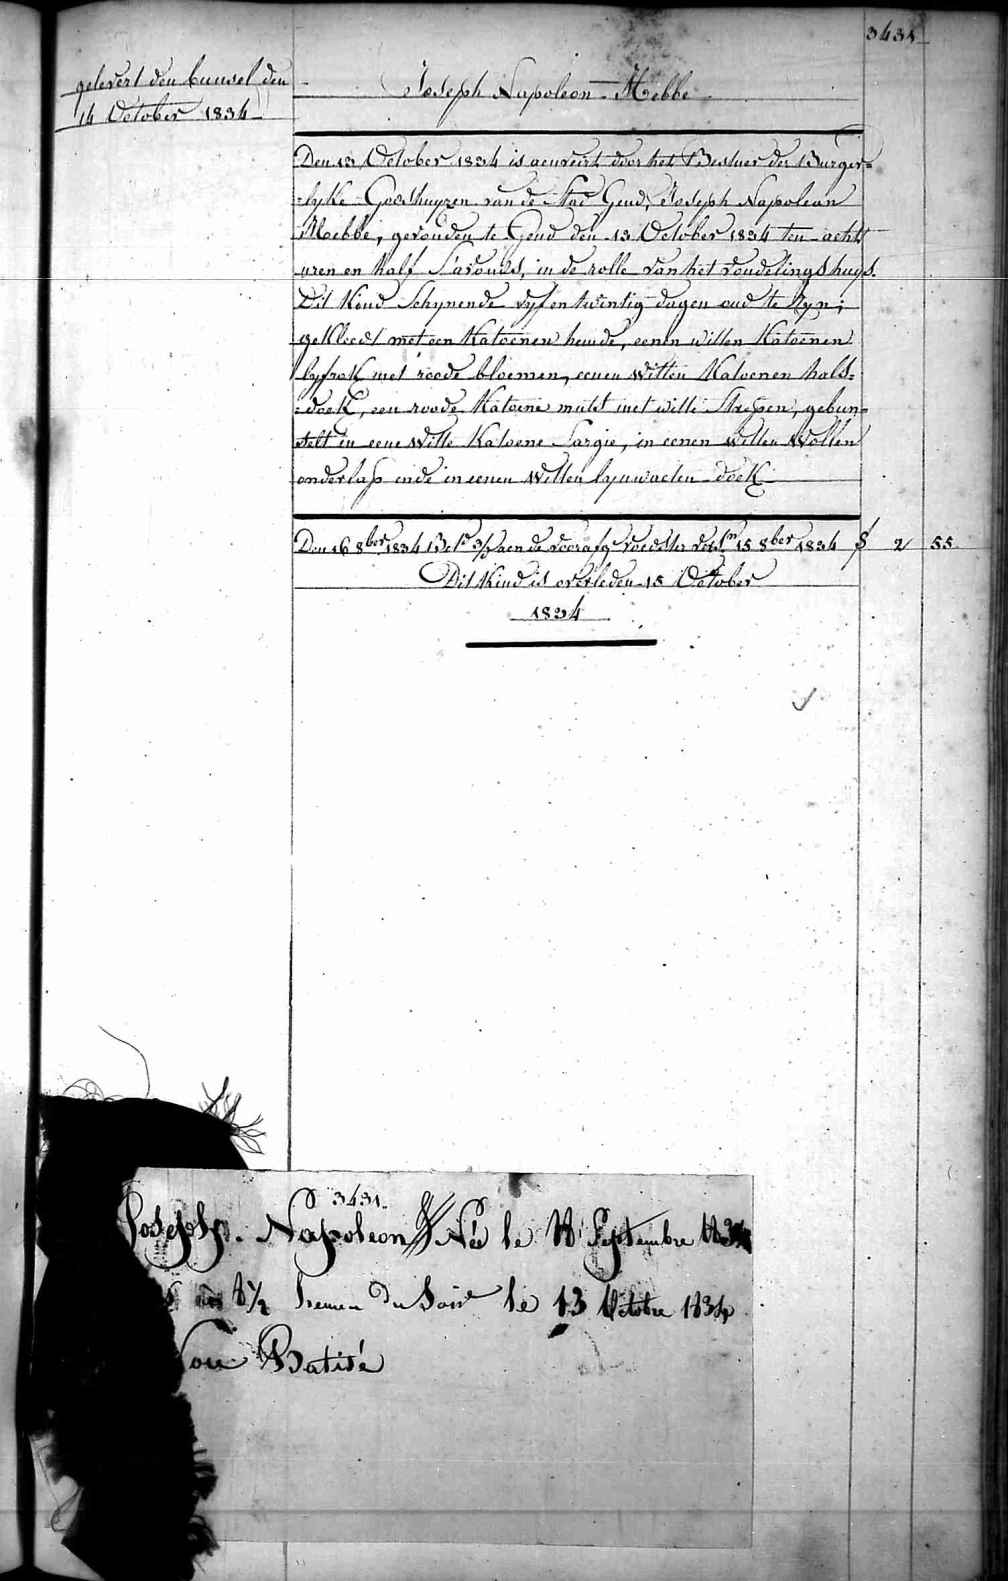 3431
gelevert den bunsel den
14 October 1834
Joseph Napoleon Mebbe
Den 13 October 1834 is aenveird door het Bestuer der Burger=
=lyke Godshuyzen van de Stad Gend, Joseph Napoleon
Mebbe, gevonden te Gend den 13 October 1834 ten acht
uren en half S'avonds, in de rolle van het vondelings huys.
Dit Kind Schynende vyf en twintig dagen oud te Zyn;
gekleed met een Katoenen hemde, eenen witten Katoenen
lyfrok met roode bloemen, eenen witten Katoenen hals=
=doek, een roode Katoene muts met witte Strepen, gebun=
selt in eene Witte Katoene Sargie, in eenen Witten Wollen
onderlap ende in eenen Witten lynwaeten doek
Den 16 8ber 1834 aen de voedster 15 8ber 1834 2 55
Dit Kind is overleden 15 October
1834
3431
Joseph. Napoleon Née le 18 Septembre 1834
8 1/2 heures du Soir le 13 Octobre 1834
Batisé